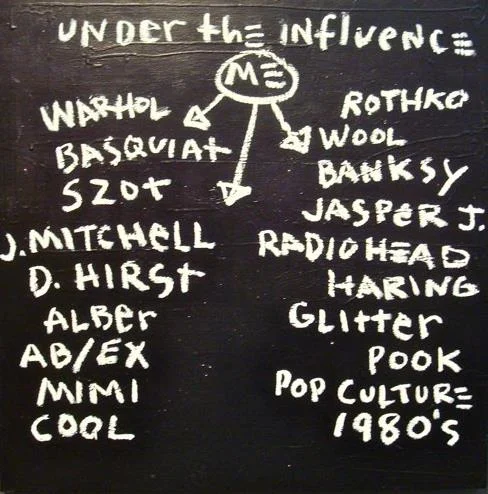 UNDER thE INFLUENCE
ME
WARHOL
BASQUIAt
SZOt
J. MITCHELL
D. HIRSt
ALBER
AB/EX
MIMI
COOL
ROTHKO
WOOL
BANKSY
JASPER J.
RADIOHEAD
HARING
GLittER
POOK
POP CULTURE
1980's